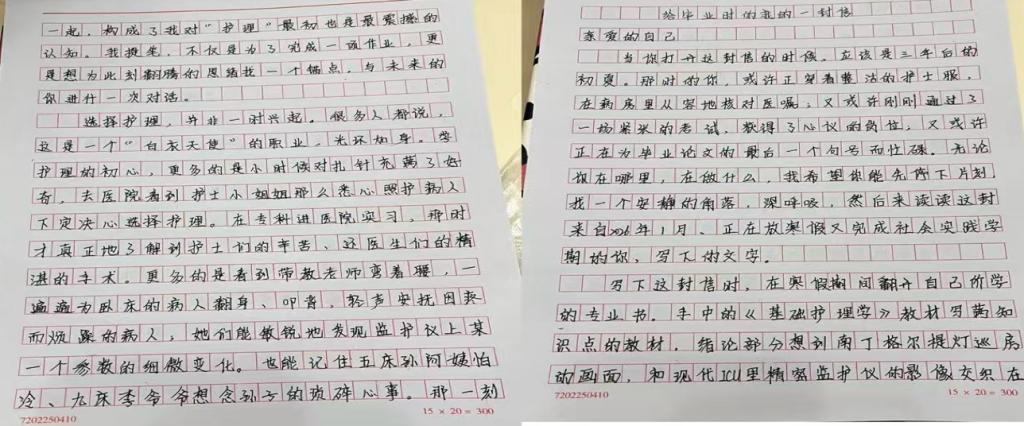 给毕业时的我的一封信
亲爱的自己
当你打开这封信的时候，应该是三年后的
初夏。那时的你，或许正穿着整洁的护士服，
在病房里从容地核对医嘱；又或许刚刚通过了
一场紧张的考试，获得了心仪的岗位，又或许
正在为毕业论文的最后一个句号而忙碌。无论
你在哪里，在做什么，我希望你能先停下片刻，
找一个安静的角落，深呼吸，然后来读读这封
来自2026年1月、正在放寒假又完成社会实践学
期的你、写下的文字。
写下这封信时，在寒假期间翻开自己所学
的专业书。手中的《基础护理学》教材写满知
识点的教材，绪论部分想到南丁格尔提灯巡房
的画面，和现代ICU里精密监护仪的影像交织在
7202250410
15 × 20 = 300
一起，构成了我对“护理”最初也是最震撼的
认知。我提笔，不仅是为了完成一项作业，更
是想为此刻翻腾的思绪找一个锚点，与未来的
你进行一次对话。
选择护理，并非一时兴起。很多人都说，
这是一个“白衣天使”的职业，光环如身。学
护理的初心，更多的是小时候对扎针充满了好
奇，去医院看到护士小姐姐那么悉心照护病人
下定决心选择护理。在专科进医院实习，那时
才真正地了解到护士们的辛苦、还医生们的精
湛的手术。更多的是看到带教老师弯着腰，一
遍遍为卧床的病人翻身、叩背，轻声安抚因疼
而烦躁的病人；她们能敏锐地发现监护仪上某
一个参数的细微变化。也能记住五床孙阿姨怕
冷、九床李爷爷想念孙子的琐碎心事。那一刻
7202250410
15 × 20 = 300